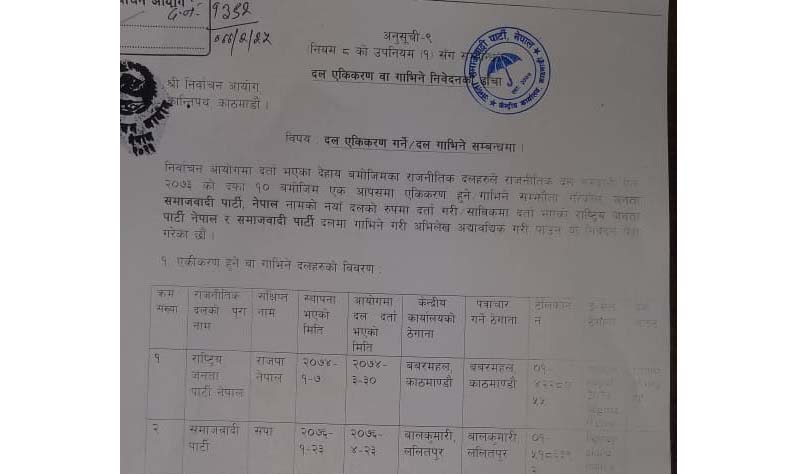 द.नं.- १३९२
०७७/२/२७
अनुसूची-९
नियम ८ को उपनियम (१) सँग
दल एकिकरण वा गाभिने निवेदनको ढाँचा
समाजवादी पार्टी, नेपाल
केन्द्रीय कार्यालय
श्री निर्वाचन आयोग
कान्तिपथ काठमाडौं ।
विषय : दल एकिकरण गर्ने/दल गाभिने सम्बन्धमा ।
निर्वाचन आयोगमा दर्ता भएका देहाय बमोजिमका राजनीतिक दलहरुले राजनीतिक दल सम्बन्धी ऐन
२०७३ को दफा १० बमोजिम एक आपसमा एकिकरण हुने/गाभिने सम्झौता गरेकोले जनता
समाजवादी पार्टी, नेपाल नामको नयाँ दलको रुपमा दर्ता गरी साबिकमा दर्ता भएका राष्ट्रिय जनता
पार्टी नेपाल र समाजवादी पार्टी दलमा गाभिने गरी अभिलेख अद्यावधिक गरी पाउन यो निवेदन पेश
गरेका छौं ।
१. एकीकरण हुने वा गाभिने दलहरुको विवरण :
क्रम राजनीतिक संक्षिप्त स्थापना आयोगमा केन्द्रीय पत्राचार टेलिफोन
संख्या दलको पुरा नाम भएको दल दर्ता कार्यालयको गर्ने ठेगाना नं
नाम मिति भएको ठेगाना
मिति
१ राष्ट्रिय राजपा २०७४- २०७४- बबरमहल, बबरमहल, ०१-
जनता नेपाल १-७ ३-३० काठमाण्डौ काठमाण्डौ
पार्टी नेपाल ५५
२ समाजवादी सपा २०७६- २०७६- बालकुमारी, बालकुमारी, ०१-
पार्टी १-२३ ४-२३ ललितपुर ललितपुर